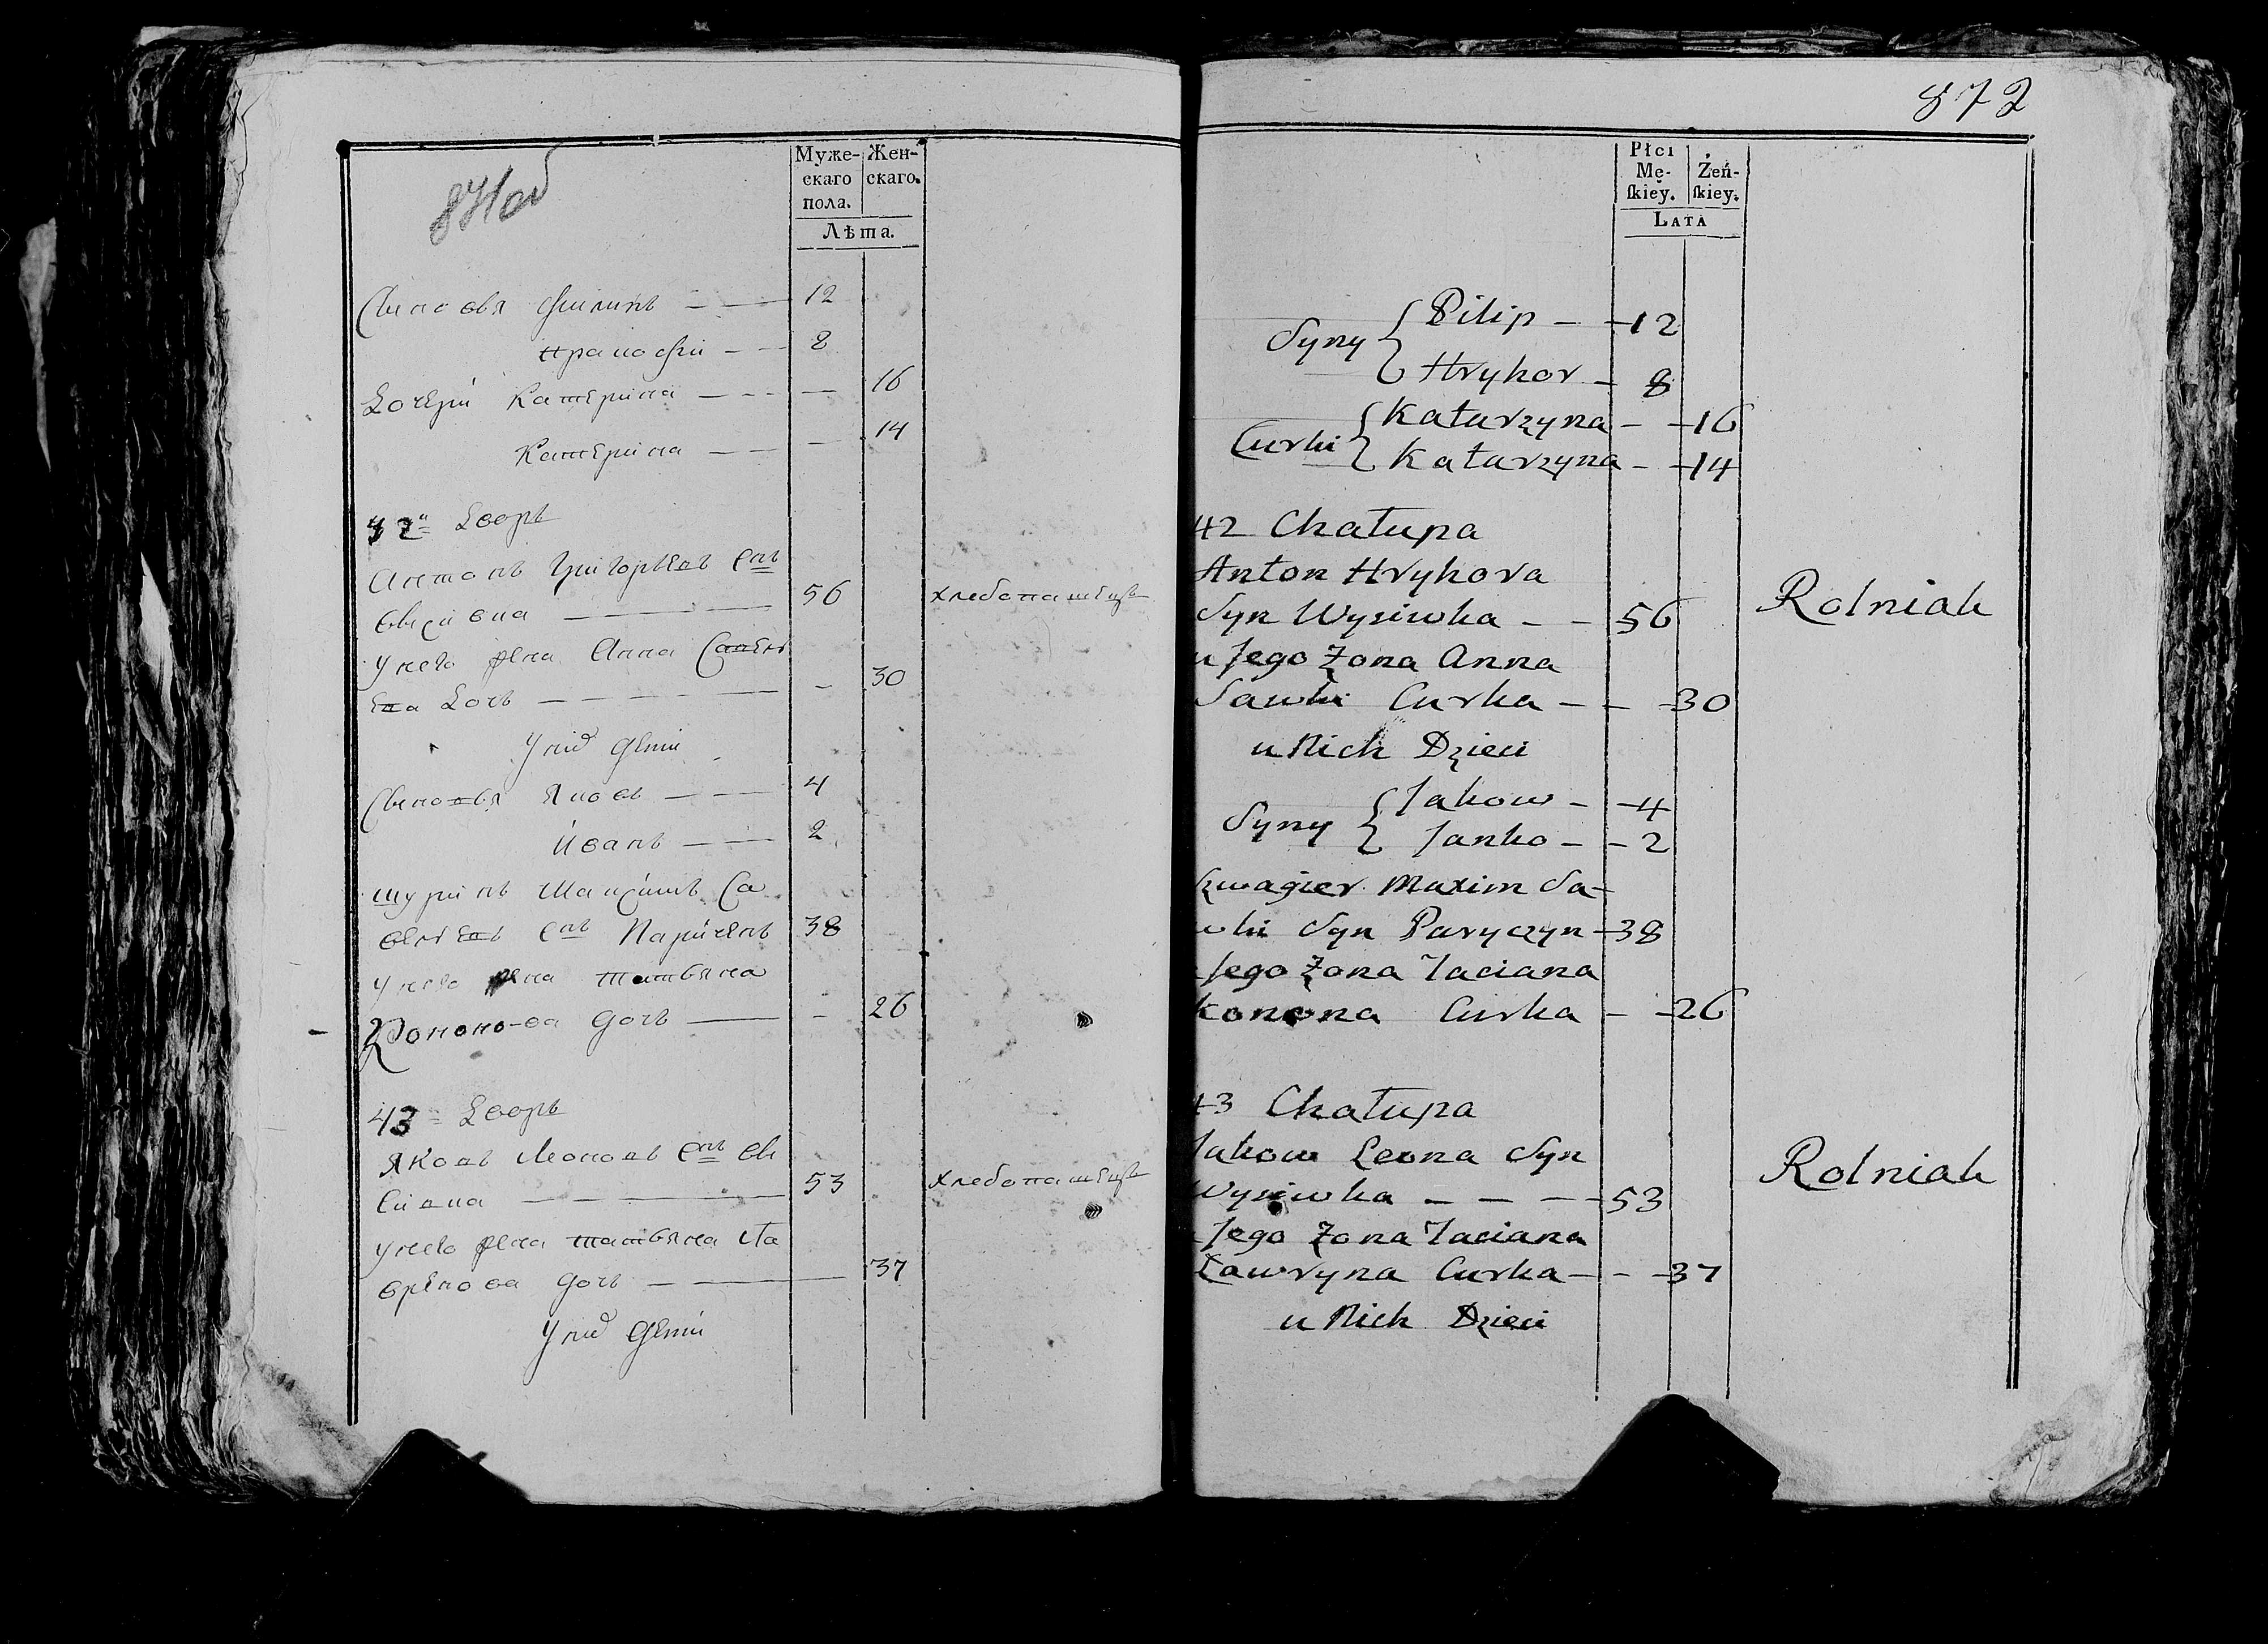 Муже-
скаго
пола.
Жен-
скаго.
Лѣта.
Сыновья Филипъ — — 12
Дочери Катерина — — — 16
Катерина — — — 14
42й Дворъ
Антонъ Григорьевъ снъ
Высивка — — — 56 хлебопашецъ
У него жена Анна
дочь — — — — 30
У нихъ дети
Сыновья Яковъ — — 4
Иванъ — — 2
шуринъ Максимъ Са
снъ Париченъ 38
У него жена татьяна
Кононова дочь — — 26
43й Дворъ
Яковъ Леоновъ снъ Вы
сивка — — — 53 хлебопашецъ
У него жена татьяна Ла
вренова дочь — — — 37
У нихъ дети
872
Płci
Mę-
skiey.
Żeń-
skiey.
Lata
Syny Pilip — — 12
Hryhor — 8
Curki Katarzyna — — 16
Katarzyna — — 14
42 Chałupa
Anton Hryhora
Syn Wysiwka — — 56 Rolniak
u Jego Żona Anna
Sawki Curka — — 30
u Nich Dzieci
Syny Jakow — — 4
Janko — — 2
Szwagier Maxim Sa-
wki Syn Paryczyn — 38
Jego Żona Taciana
Konona Curka — — 26
43 Chałupa
Jakow Leona Syn
Wysiwka — — — 53 Rolniak
Jego Żona Taciana
Ławryna Curka — — — 37
u Nich Dzieci